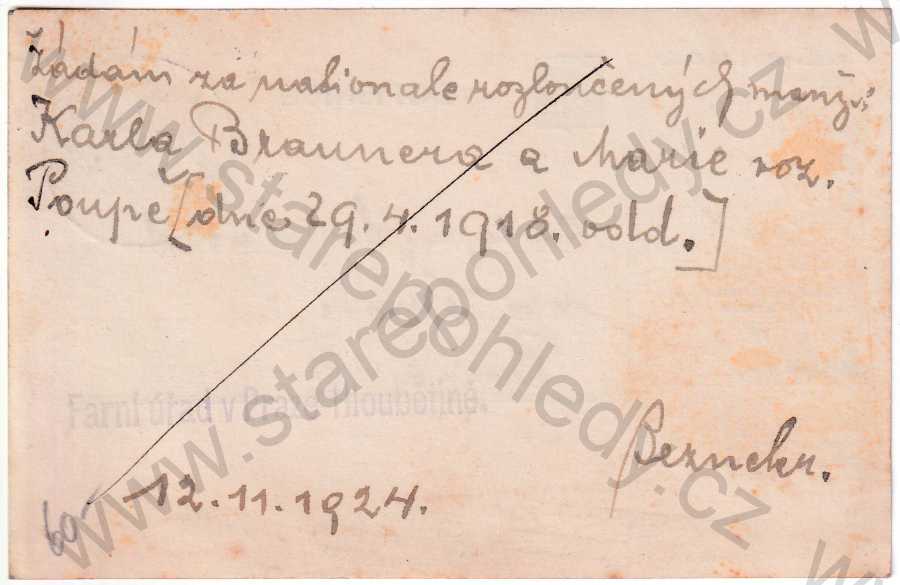 Žádám za nationale rozloučených manž.:
Karla Braunera a Marie roz.
Poupě [dne 29. 4. 1918. odd.]
Farní úřad v Praze-Hloubětíně.
12. 11. 1924.
60
www.starepohledy.cz
www.starepohledy.cz